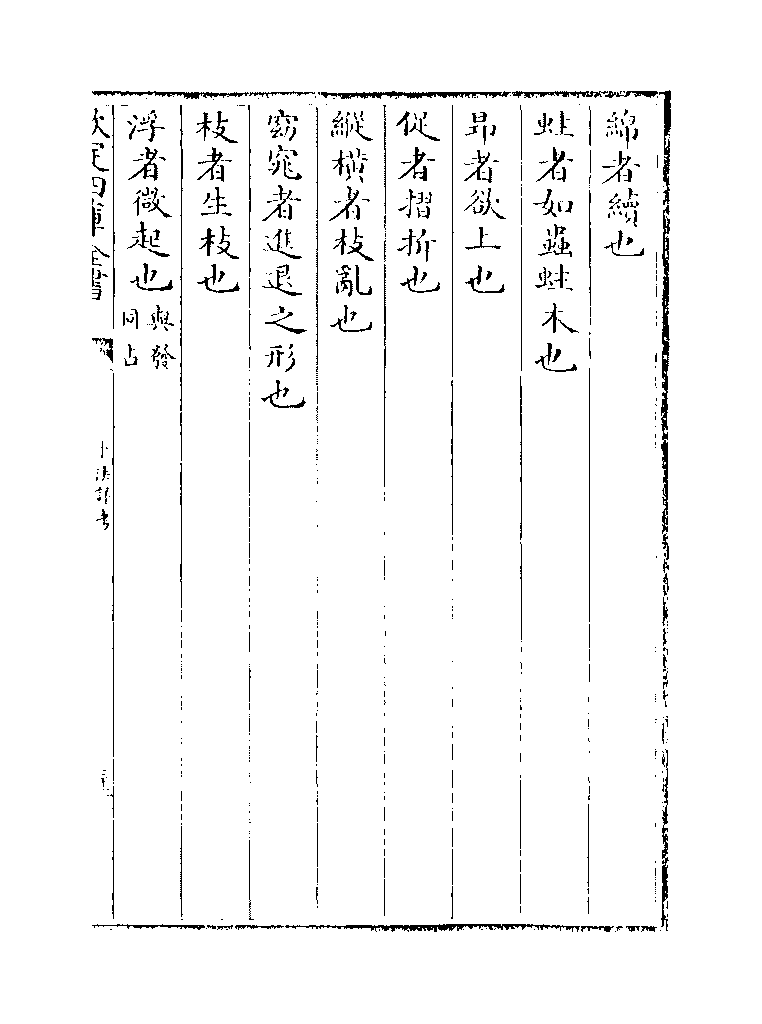 綿者續也
蛀者如蟲蛀木也
昂者欲上也
促者摺折也
縱橫者枝亂也
窈窕者進退之形也
枝者生枝也
浮者微起也與發同占
欽定四庫全書
卜法詳考